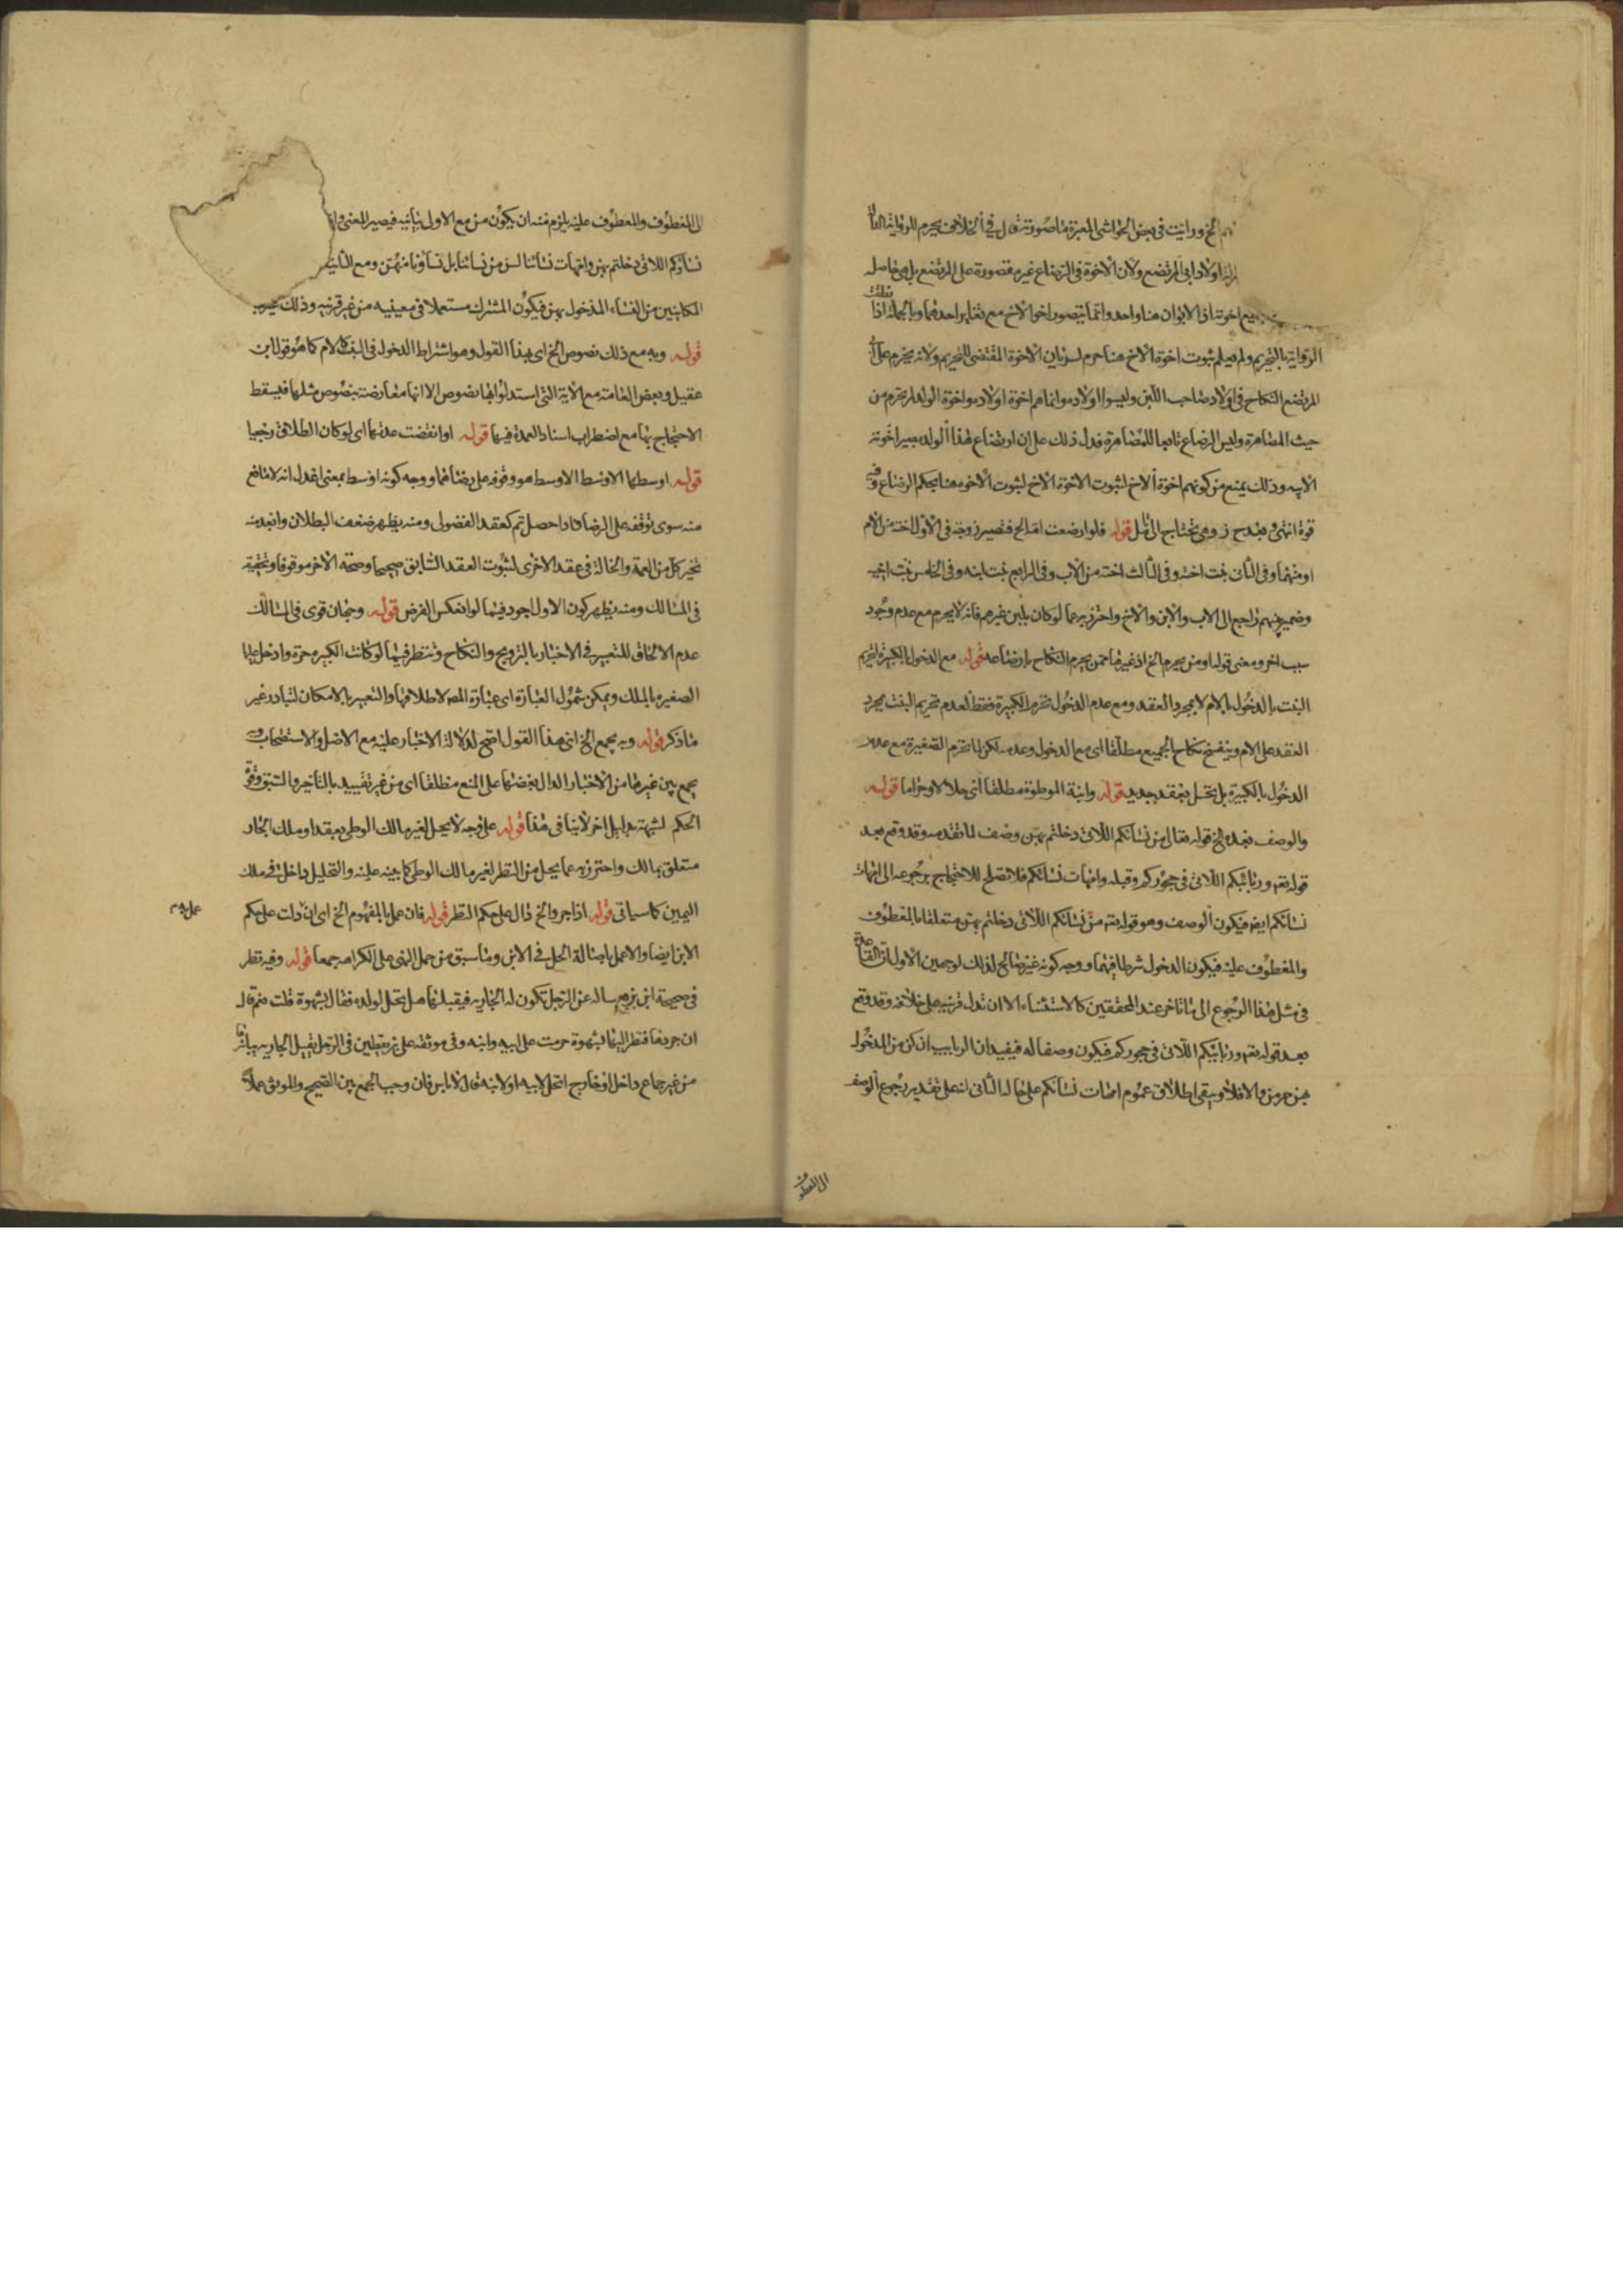 الخ ورايت في بعض الحواشي المعبرة ما صورته قال في الخلاف يحرم للرواية
اولاد ابي المرتضع ولان الاخوة في الرضاع غير مقصورة على المرتضع بل هي حاصلة
اخوتنا اذ الابوان هنا واحد وانما يتصور اخو الاخ مع تغاير احدهما وبالجملة اذا
الرواية بالتحريم ولم يعلم ثبوت اخوة الاخ هنا حرم لسريان الاخوة المقتضى للتحريم ولانه يحرم على
المرتضع النكاح في اولاد صاحب اللبن وليسوا اولاده وانما هم اخوة اولاده واخوة الولد لم تحرم من
حيث المصاهرة وليس الرضاع تابعا للمصاهرة فدل ذلك على ان ارتضاع هذا الولد يصير اخوته
لابيه وذلك يمنع من كونهم اخوة الاخ لثبوت الاخوة الاخ لثبوت الاخوة هنا بحكم الرضاع وفيه
قوة انتهى وبعد ح ز وهي تحتاج الى تأمل قوله فلو ارضعت امه الخ فتصير زوجته في الاول اخته من الام
او منهما وفي الثاني بنت اخته وفي الثالث اخته من الاب وفي الرابع بنت ابنه وفي الخامس بنت اخيه
وضمير بهم راجع الى الاب والابن والاخ واحترز به عما لو كان بلبن غيرهم فانه لا يحرم مع عدم وجود
سبب اخر ومعنى قوله او من يحرم الخ اذ غيرها ممن يحرم النكاح بارضاعه قوله مع الدخول بالكبيرة لتحريم
البنت بالدخول بالام لا بمجرد العقد ومع عدم الدخول تحرم الكبيرة فقط لعدم تحريم البنت بمجرد
العقد على الام وينفسخ نكاح الجميع مطلقا اى مع الدخول وعدمه لكن لا تحرم الصغيرة مع عدم
الدخول بالكبيرة بل تحل بعقد جديد قوله وابنة الموطوءة مطلقا اى حلالا وحراما قوله
والوصف بعده الخ قوله تعالى من نسائكم اللاتي دخلتم بهن وصف لما تقدمه وقد وقع بعد
قوله تعه وربائبكم اللاتي في حجوركم وقبله وامهات نسائكم فلا تصلح للاحتجاج برجوعه الى امهات
نسائكم ايضه فيكون الوصف وهو قوله تعه من نسائكم اللاتي دخلتم بهن متعلقا بالمعطوف
والمعطوف عليه فيكون الدخول شرطا فيهما ووجه كونه غير صالح لذلك لوجهين الاول ان القاعدة
في مثل هذا الرجوع الى ما تاخر عند المحققين كالاستثناء الا ان تدل قرينه على خلافه وقد وقع
بعد قوله تعه وربائبكم اللاتي في حجوركم فيكون وصفا له فيفيد ان الربايب ان كن من المدخول
بهن حرمن والا فلا ويبقى اطلاق عموم امهات نسائكم على حاله الثاني انه على تقدير رجوع الوصف
الى المعطوف
الى المعطوف والمعطوف عليه يلزم منه ان يكون من مع الاول بيانيه فيصير المعنى
نساؤكم اللاتي دخلتم بهن وامهات نسائنا لسن من نسائنا بل نساؤنا منهن ومع الثانيه
الكاينين من النساء المدخول بهن فيكون المشترك مستعملا في معينيه من غير قرينه وذلك غير
قوله وبه مع ذلك نصوص الخ اى بهذا القول وهو اشتراط الدخول في البنت كالام كما هو قول ابن
عقيل وبعض العامه مع الاية التي استدلوا بها نصوص الا انها معارضة بنصوص مثلها فيسقط
الاحتجاج بها مع اضطراب اسناد العمدة فيها قوله او انقضت عدتها اى لو كان الطلاق رجعيا
قوله اوسطها الاوسط الاوسط هو وقوفه على رضاهما ووجه كونه اوسط بمعنى اعدل انه لا مانع
منه سوى توقفه على الرضا فاذا حصل تم كعقد الفضولي ومنه يظهر ضعف البطلان وابعد منه
تخير كل من العمة والخالة في عقد الاخرى لثبوت العقد السابق صحيحا وصحة الاخر موقوفا وتحقيقه
في المسالك ومنه يظهر كون الاول اجود فيما لو انعكس الفرض قوله وجهان قوى في المسالك
عدم الالحاق للتعبير في الاخبار بالتزويج والنكاح وتنظر فيما لو كانت الكبيره حرة وادخل عليها
الصغيره بالملك ويمكن شمول العبارة اى عبارة المصه لاطلاقها والتعبير بالامكان لتبادر غير
ما ذكر قوله وبه يجمع الخ اى هذا القول اصح لدلالة الاخبار عليه مع الاصل والاستصحاب وبه
يجمع بين غيرها من الاخبار الدال بعضها على المنع مطلقا اى من غير تقييد بالتأخير والسبق
الحكم لشبهة بدليل اخر لا ينافي هذا قوله على وجه لا يحل لغير مالك الوطى بعقد او ملك الجار
متعلق بمالك واحترز به عما يحل من النظر لغير مالك الوطى كما بينه عليه والتحليل داخل في ملك
اليمين كما سياتي قوله اذا جرد الخ دال على حكم النظر قوله فان عمل بالمفهوم الخ اى ان دلت على حكم
الابن ايضا والا عمل باصالة الحل في الابن وما سبق من حمل النهى على الكراهه جمعا قوله وفيه نظر
في صحيحة ابن بزيع ساله عن الرجل تكون له الجاريه فيقبلها هل تحل لولده فقال بشهوة قلت نعم قال
ان جردها فنظر اليها بشهوة حرمت على ابيه وابنه وفي موثقه على بن يقطين في الرجل يقبل الجاريه يباشرها
من غير جماع داخل او خارج اتحل لابيه او لابنه قال لا باس فان وجب الجمع بين الصحيح والموثق عملا